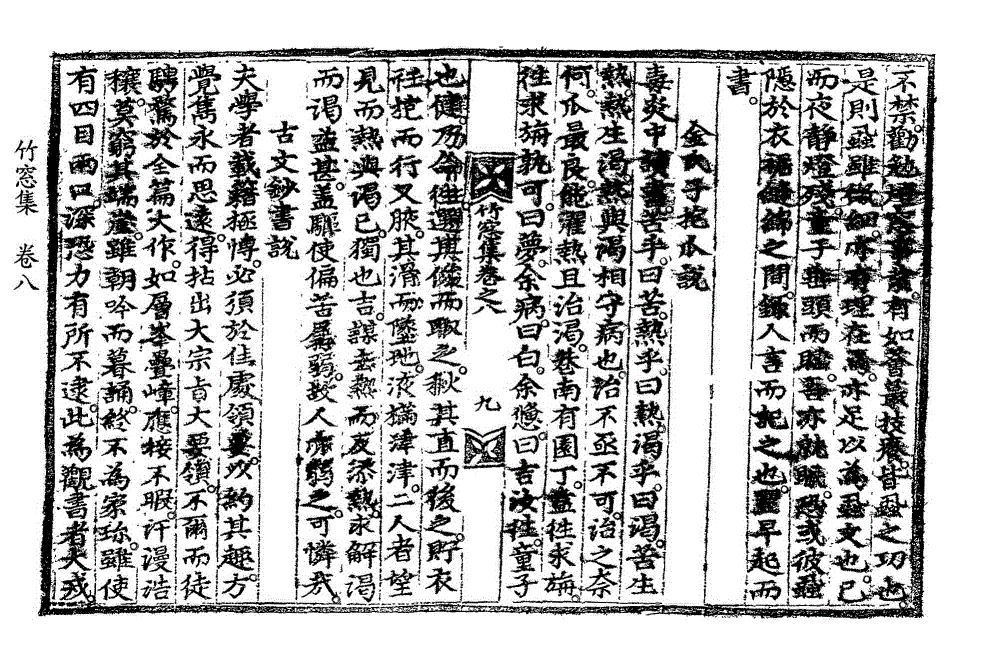 不禁勸勉
是則蝨雖微細亦有理在焉亦足以為蝨文也已
而夜靜燈殘童子垂頭而睡吾亦就睡恐或彼蝨
隱於衣裾縫綿之間錄人言而記之也蚤早起而
書
金氏子抱瓜說
毒炎中讀書苦乎曰苦熱乎曰熱渴乎曰渴苦生
熱熱生渴熱與渴相守病也治不亟不可治之奈
何瓜最良能濯熱且治渴巷南有園丁盍往求旃
往求旃孰可曰夢余病曰白余憊曰吉汝往童子
竹窓集卷之八 九
也健乃命往選其
而取之
其直而後之貯衣
往抱而行又脥其滑而墜地液猶津津二人者望
見而熱與渴已獨也吉謀去熱而反添熱求解渴
而渴益甚盖驅使偏苦孱弱
人
之可憐哉
古文鈔書說
夫學者載籍極博必須於佳處領要以約其趣方
覺雋永而思遠得拈出大宗旨大要領不爾而徒
騁騖於全篇大作如層峯疊嶂應接不暇汗漫浩
穰莫窮其端崖雖朝吟而暮誦終不為家珍雖使
有四目兩口深恐力有所不逮此為觀書者大戒
竹窓集 卷八